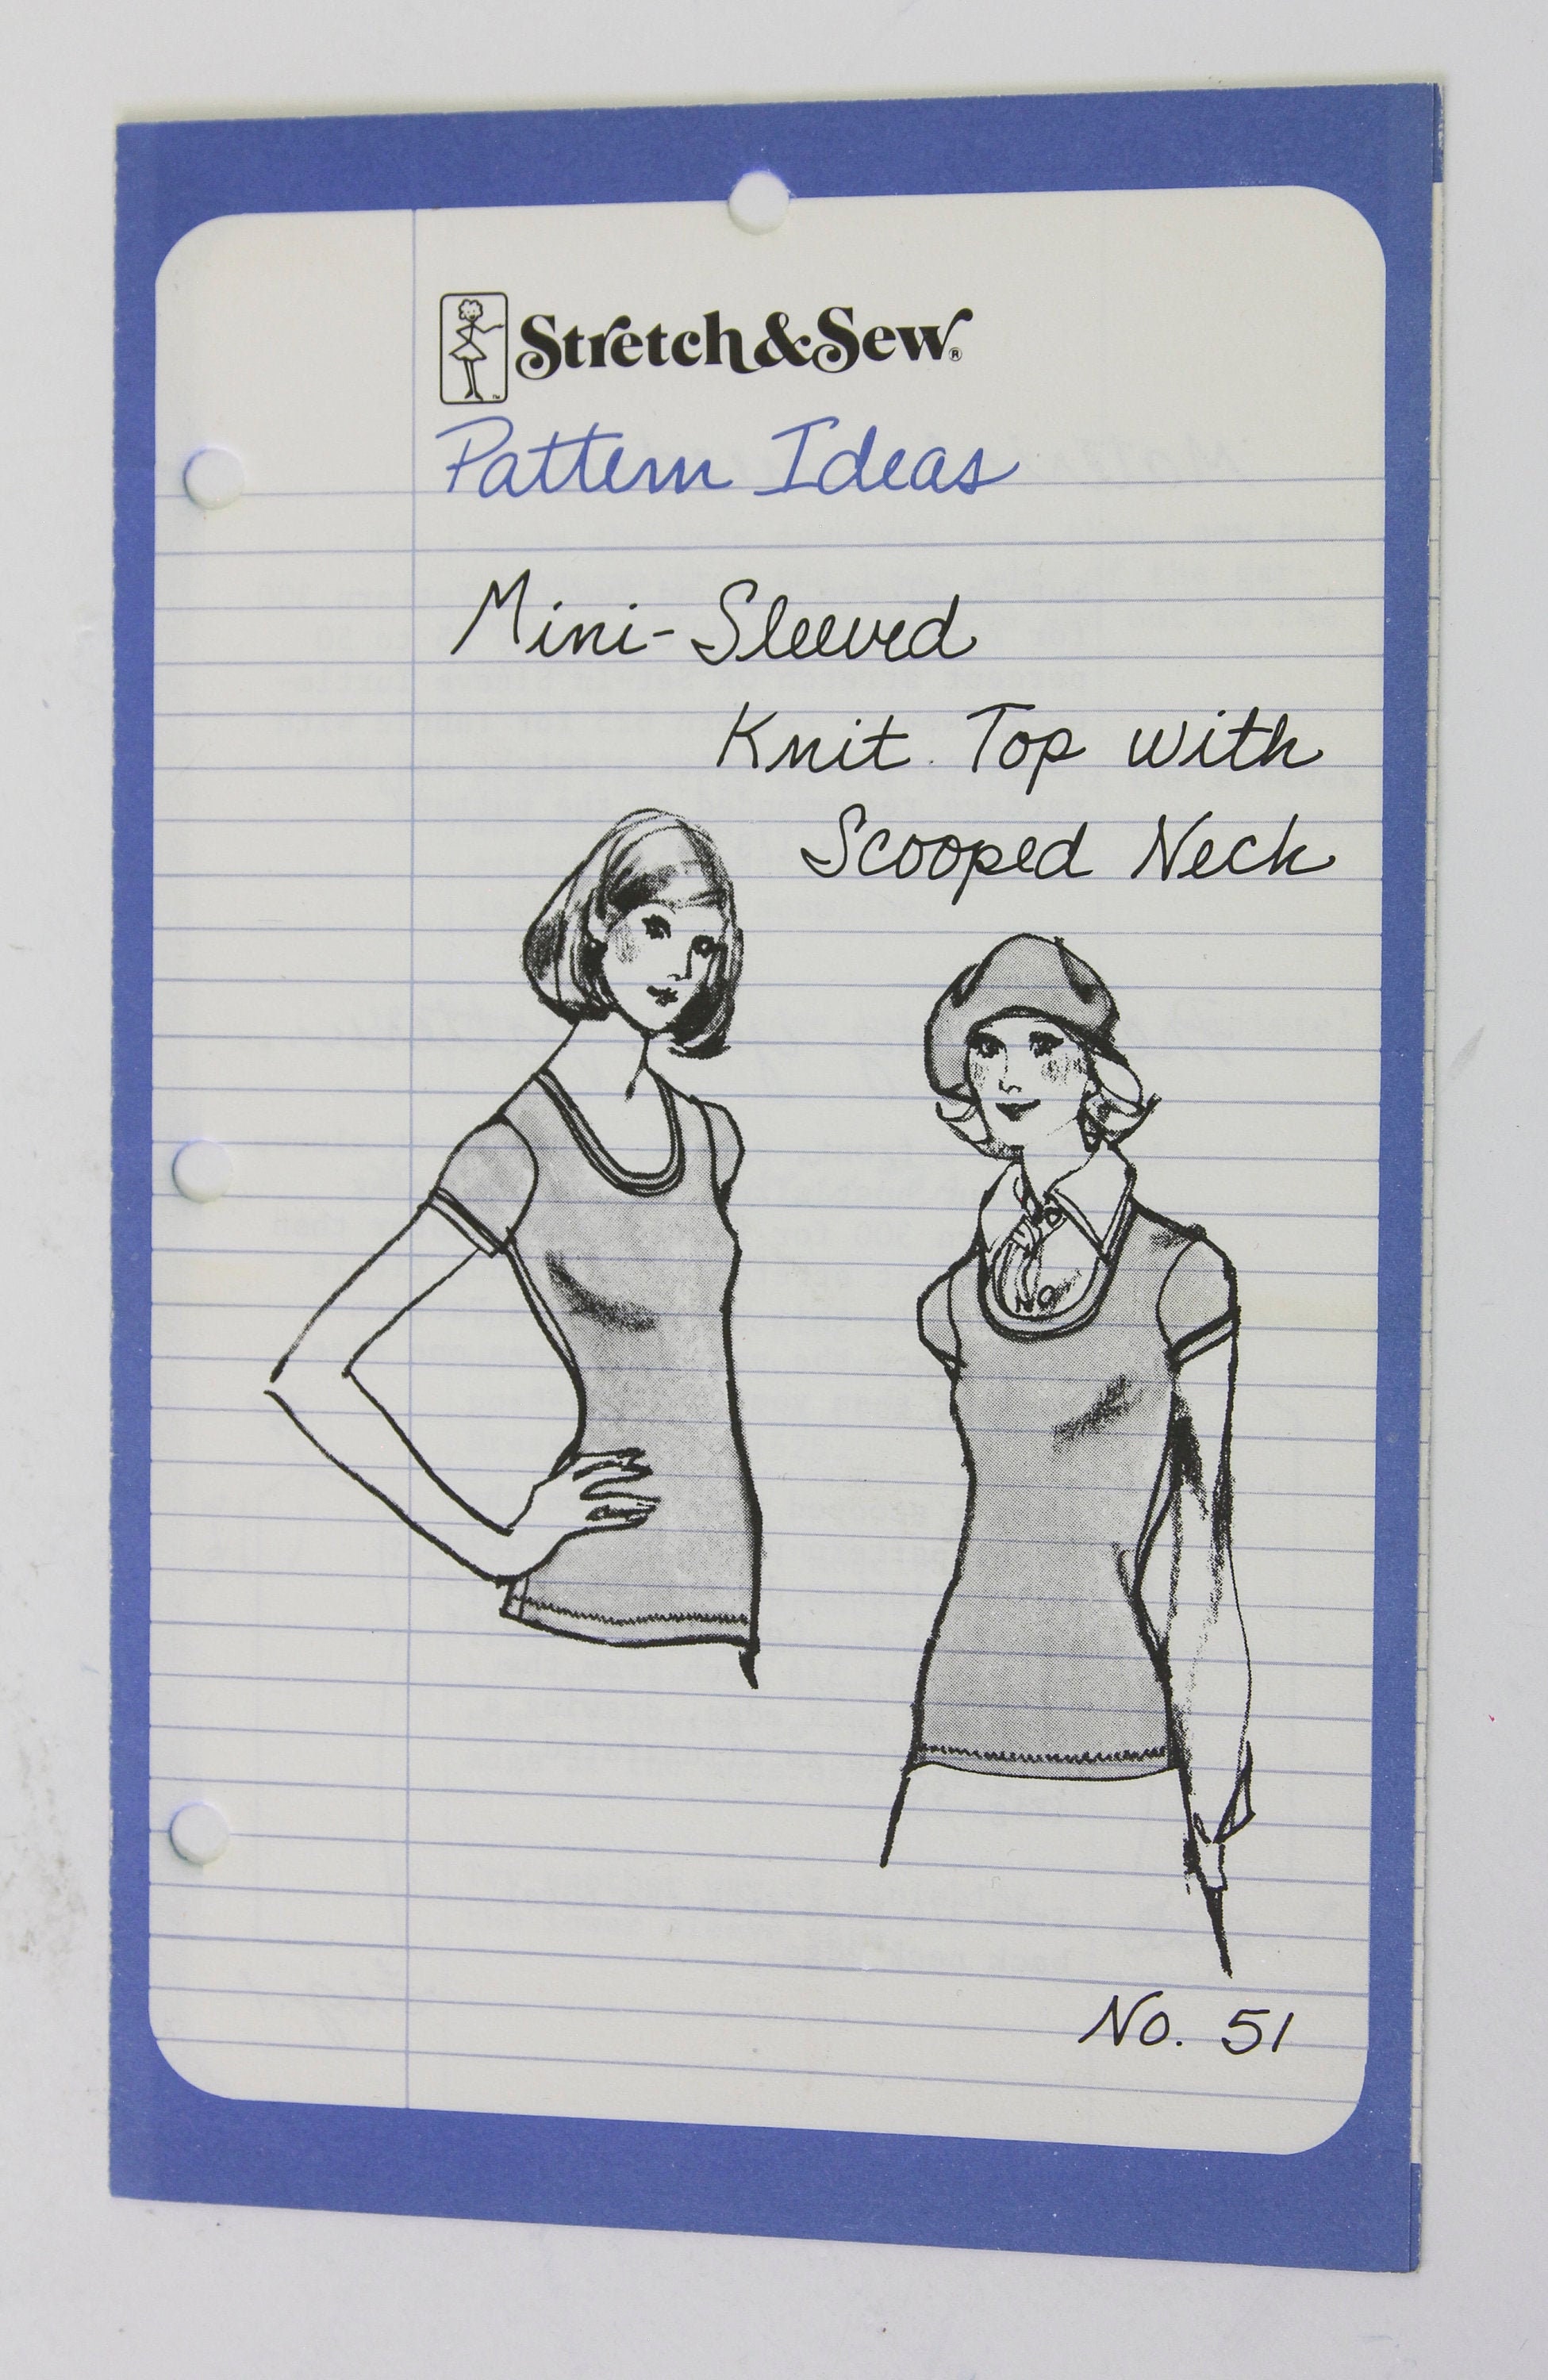 Stretch & Sew®
Pattern Ideas
Mini-Sleeved
Knit Top with
Scooped Neck
No. 51